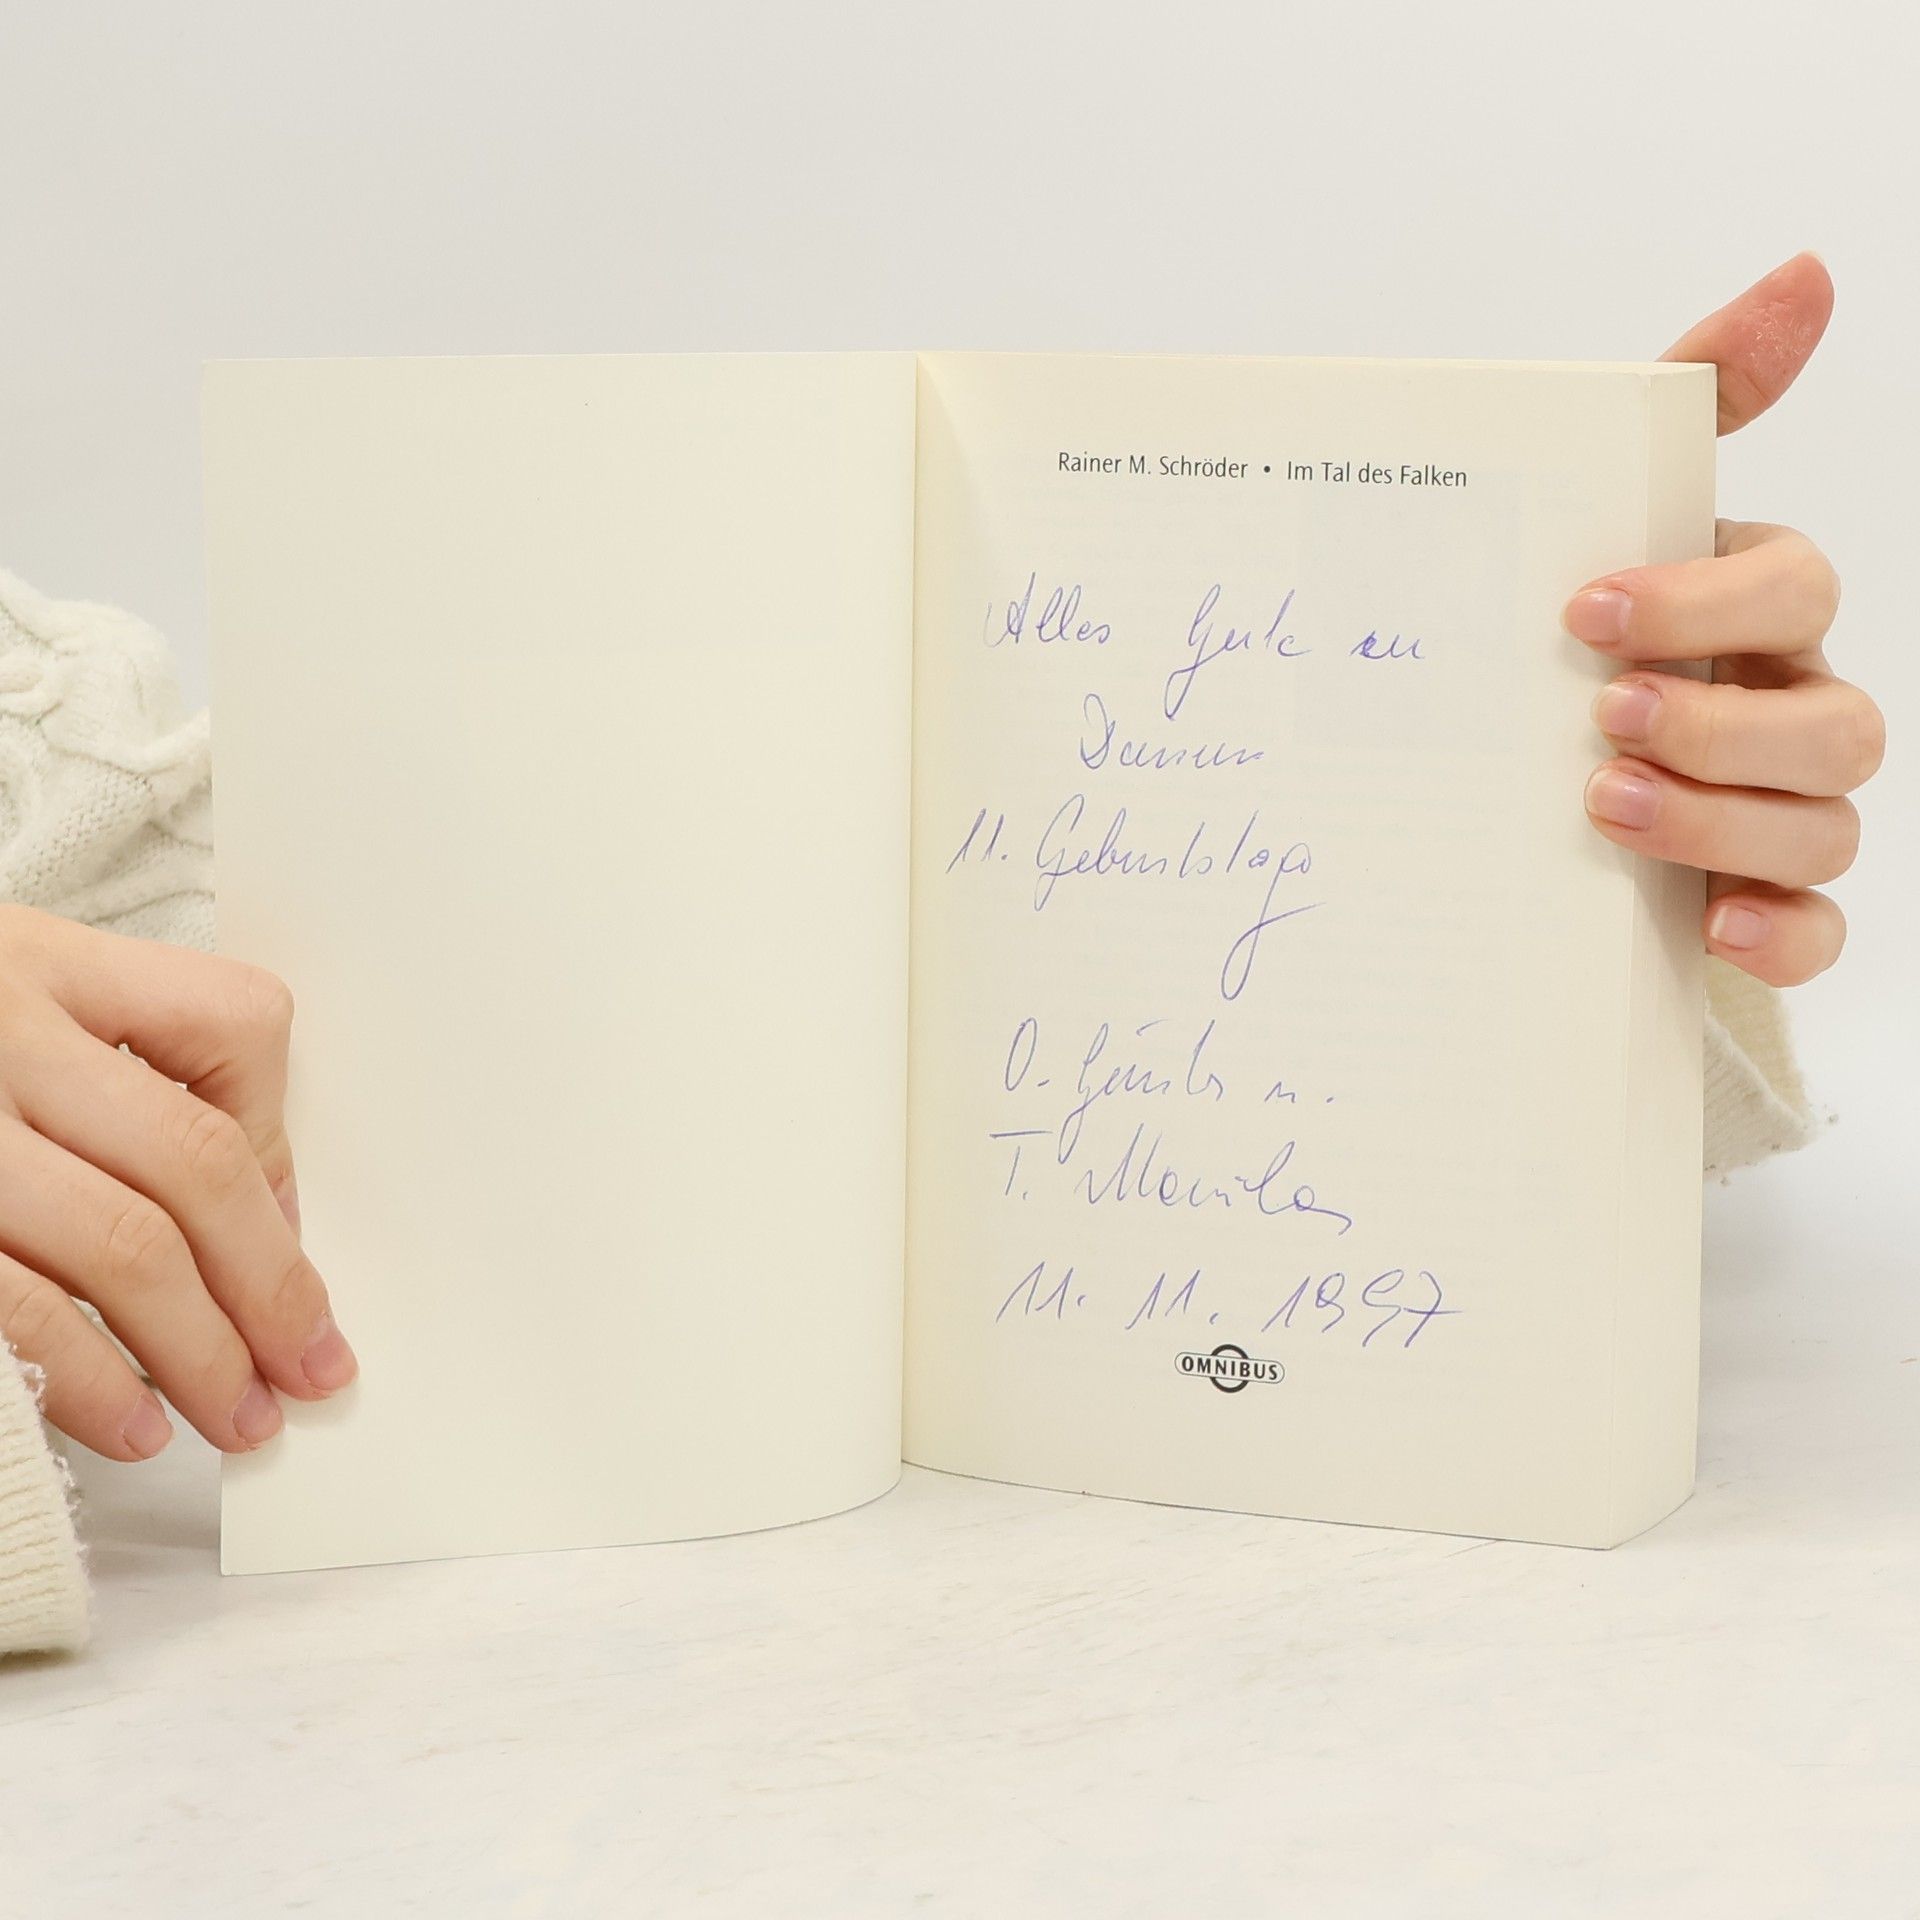 Rainer M. Schröder • Im Tal des Falken
Alles Gute zu
Deinem
11. Geburtstag
O. Günter u.
T. Monika
11. 11. 1997
OMNIBUS